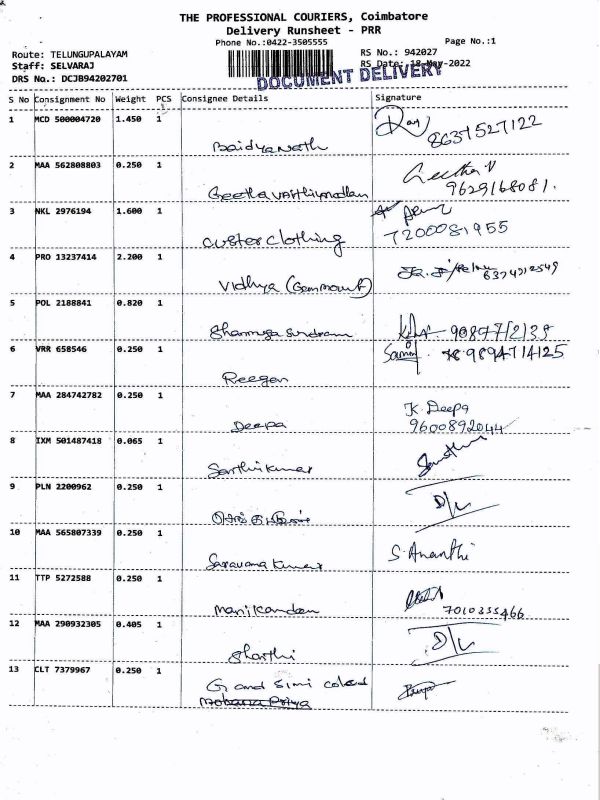 THE PROFESSIONAL COURIERS, Coimbatore
Delivery Runsheet - PRR
Phone No.:0422-3505555 Page No.:1
Route: TELUNGUPALAYAM RS No.: 942027
Staff: SELVARAJ RS Date: 18-May-2022
DRS No.: DCJB94202701 DOCUMENT DELIVERY
S No Consignment No Weight PCS Consignee Details Signature
1 MCD 500004720 1.450 1
Baidyanath 8637527122
2 MAA 562808803 0.250 1 Geetha V
Geetha vaithiyanathan 9629168081.
3 NKL 2976194 1.600 1
custer clothing 7200081955
4 PRO 13237414 2.200 1
Vidhya (Gemmount) 6374912549
5 POL 2188841 0.820 1
Shanmuga sundram
6 VRR 658546 0.250 1 9894714125
Reegan
7 MAA 284742782 0.250 1 K. Deepa
Deepa 9600892044
8 IXM 501487418 0.065 1
Sasthikumar
9 PLN 2200962 0.250 1 D/L
10 MAA 565807339 0.250 1 S. Ananthi
Saravana kumar
11 TTP 5272588 0.250 1
Manikandan 7010335466
12 MAA 290932305 0.405 1 D/L
Sharthi
13 CLT 7379967 0.250 1
Grand Simi
Mohana Priya